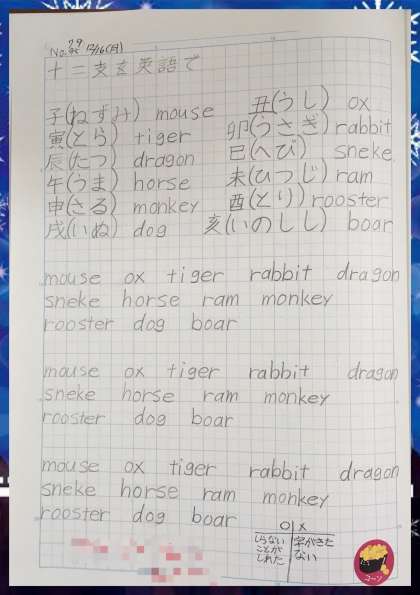 No.29 12/16(月)
十二支を英語で
子(ねずみ) mouse 丑(うし) ox
寅(とら) tiger 卯(うさぎ) rabbit
辰(たつ) dragon 巳(へび) sneke
午(うま) horse 未(ひつじ) ram
申(さる) monkey 酉(とり) rooster
戌(いぬ) dog 亥(いのしし) boar
mouse ox tiger rabbit dragon
sneke horse ram monkey
rooster dog boar
mouse ox tiger rabbit dragon
sneke horse ram monkey
rooster dog boar
mouse ox tiger rabbit dragon
sneke horse ram monkey
rooster dog boar
○ ×
しらない
ことが
しれた
字がきた
ない
コーン